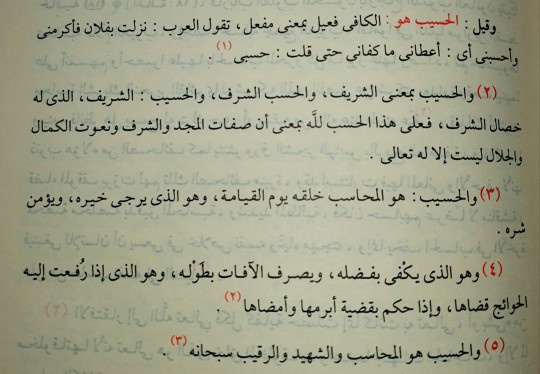 وقيل : الحسيب هو : الكافى فعيل بمعنى مفعل ، تقول العرب : نزلت بفلان فأكرمنى
وأحسبنى أى : أعطانى ما كفانى حتى قلت : حسبى (١) .
(٢) والحسيب بمعنى الشريف ، والحسب الشرف ، والحسيب : الشريف ، الذى له
خصال الشرف ، فعلى هذا الحسب للَّه بمعنى أن صفات المجد والشرف ونعوت الكمال
والجلال ليست إلا له تعالى .
(٣) والحسيب : هو المحاسب خلقه يوم القيامة ، وهو الذى يرجى خيره ، ويؤمن
شره .
(٤) وهو الذى يكْفى بفضله ، ويصرف الآفات بطَوْله ، وهو الذى إذا رُفعت إليه
الحوائج قضاها ، وإذا حكم بقضية أبرمها وأمضاها (٢) .
(٥) والحسيب هو المحاسب والشهيد والرقيب سبحانه (٣) .